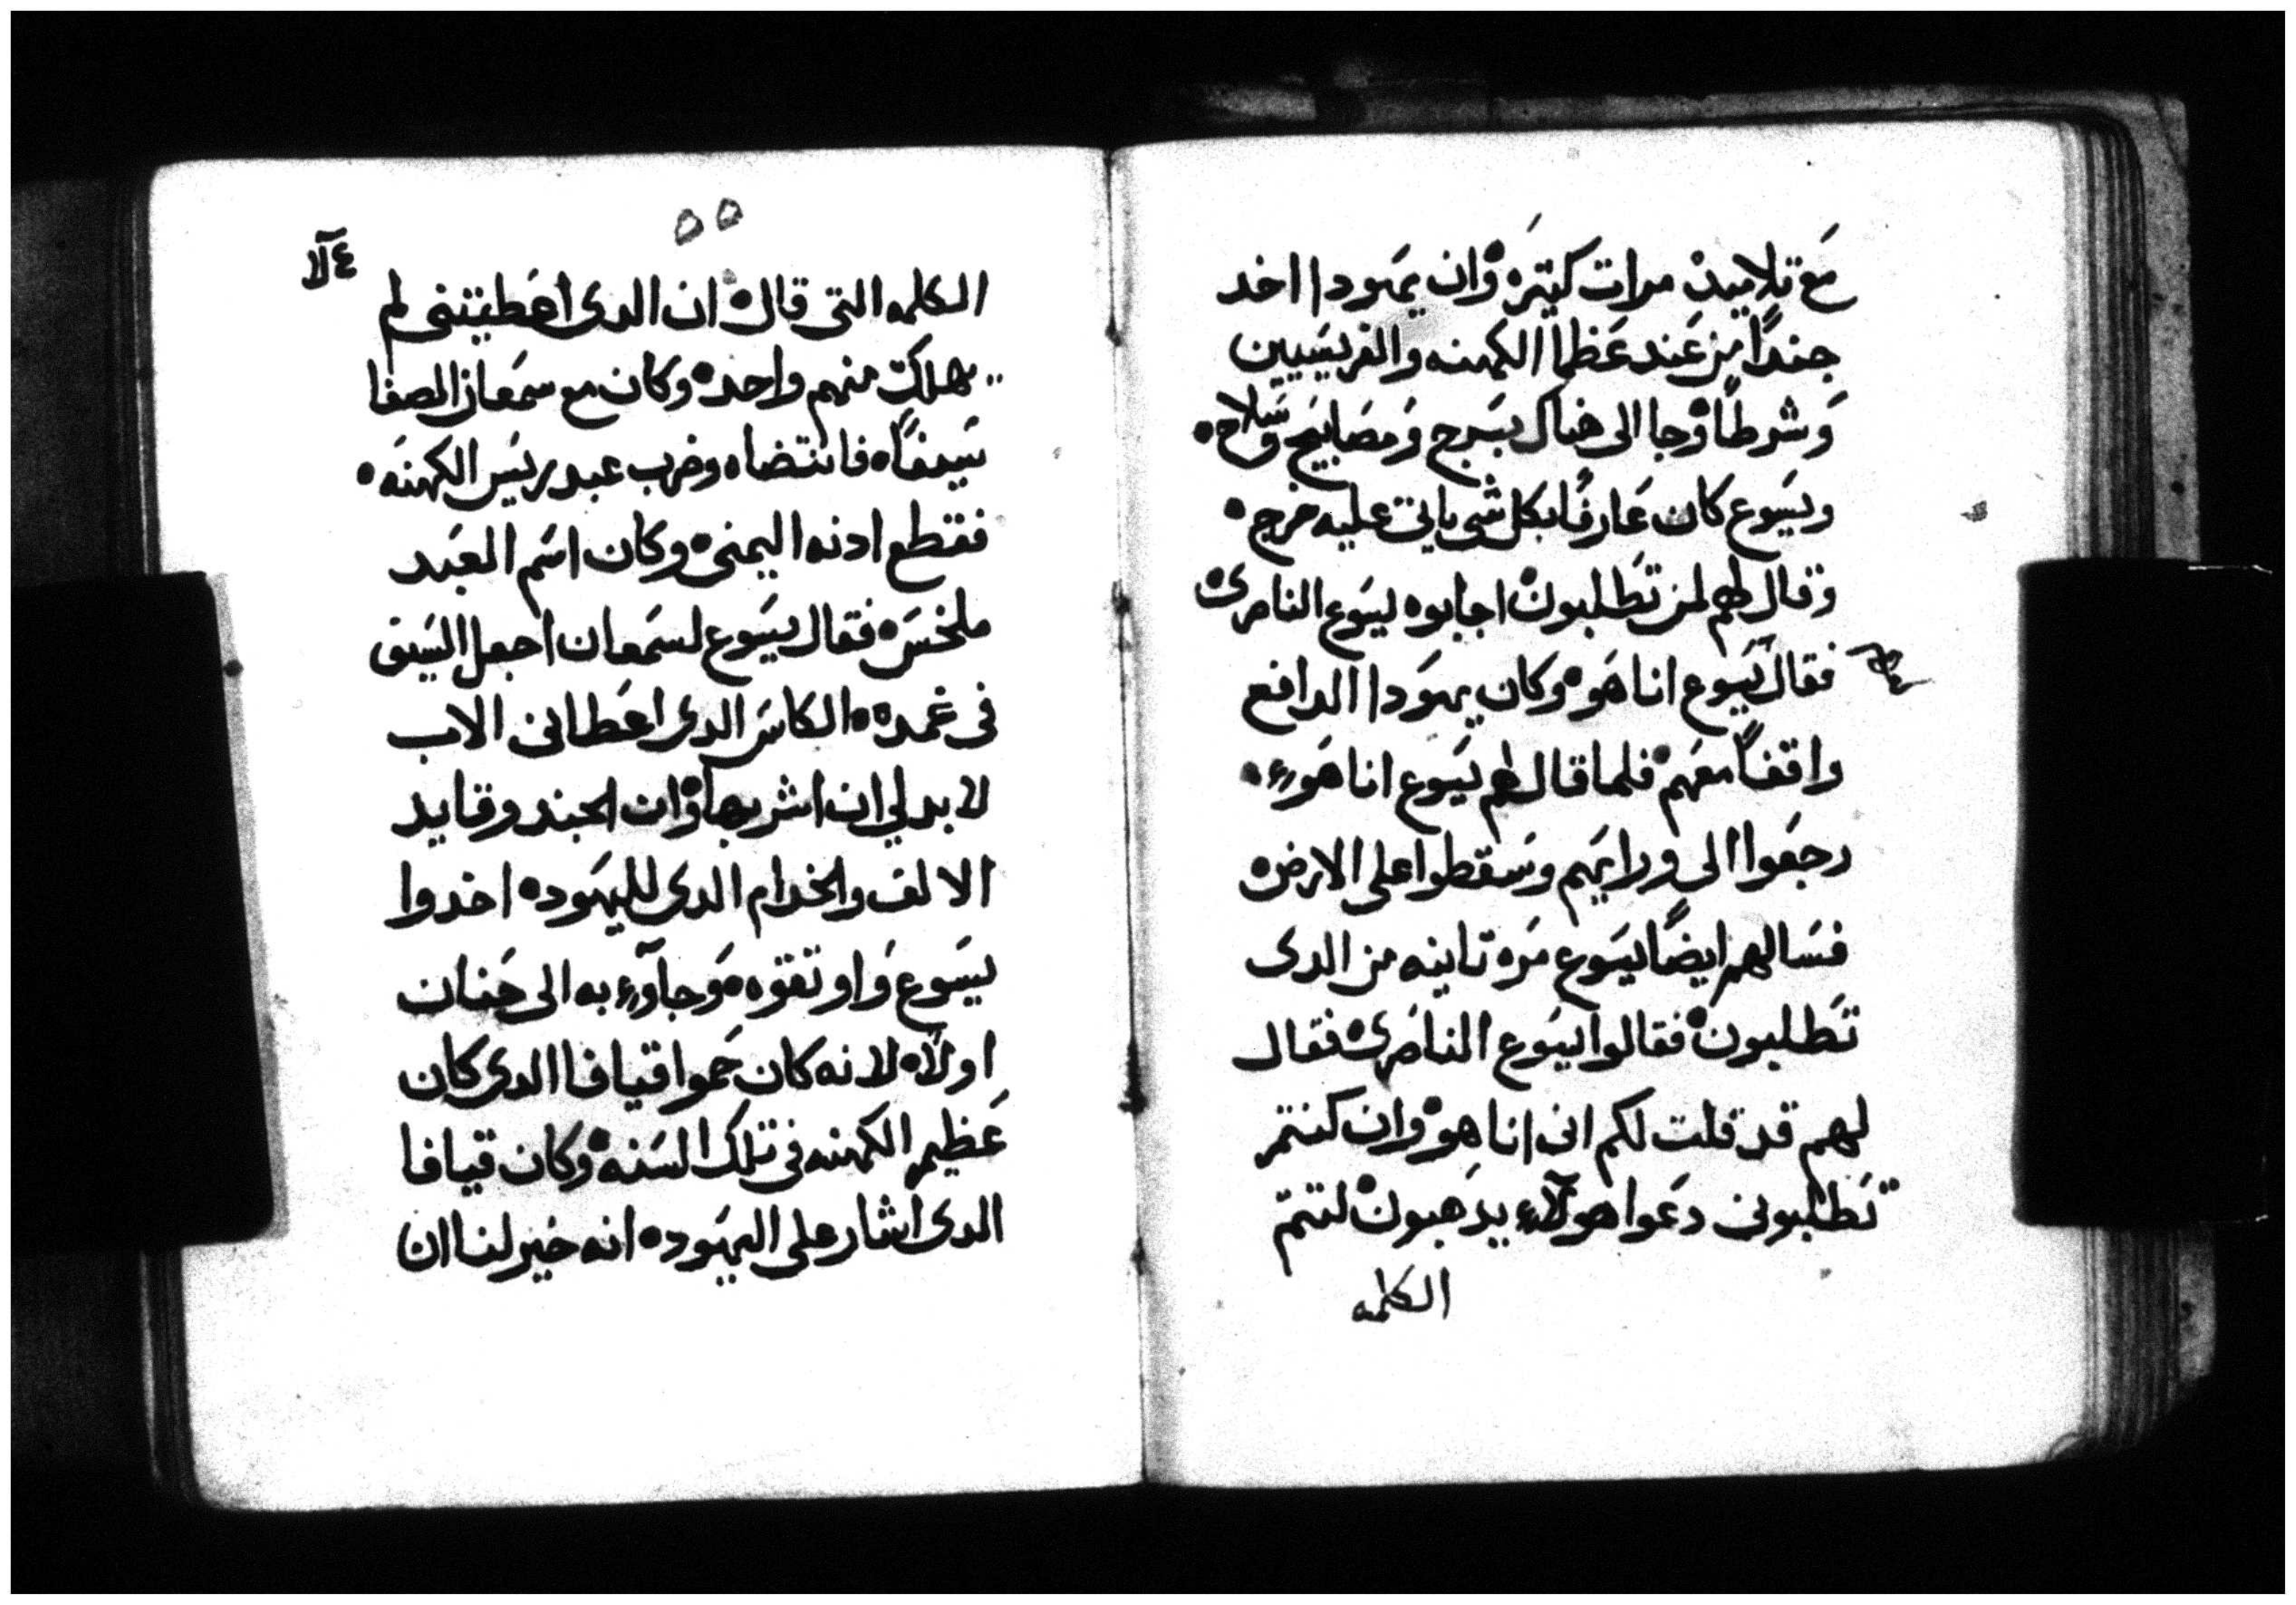 مَع تلاميدْ مرات كيتره وان يهَودا اخد
جنداً من عَند عَظما الكهنه والفريسَيين
وَشرطاً وجا الى هناك بسَرج وَمصَابيَح وسَلاح
ويسَوع كان عَارفاً بكل شى ياتى عليه خرج
وقال لهم لمن تطَلبون اجابوه ليسَوع الناصرى
فقال يسَوع انا هَو وكان يهَودا الدافع
واقفاً معهَم فلما قال لهم يسَوع انا هَو
رجعَوا الى ورايهم وسَقطوا على الارض
فسَالهم ايضاً يسَوع مَره تانيه من الدى
تَطلبون فقالوا ليسَوع الناصَرى فقال
لهم قد قلت لكم انى انا هو وان كنتم
تَطلبونى دعَوا هولآء يدَهبون لتتم
الكلمه
٥٥
الكلمه التى قال ان الدى اعَطيتنى لم
يهلك منهم واحد وكان مع سمعَان الصفا
سَيفاً فانتضاه وضرب عبد ريسَ الكهنَه
فقطع ادنه اليمنى وكان اسَم العبَد
ملخسَ فقال يسَوع لسمَعان اجعل السَيف
فى غمده الكاسَ الدى اعَطانى الاب
لا بد لي ان اشربها وان الجند وقايد
الالف والخدام الدى لليهَود اخدوا
يسَوع وَاوتقوه وَجآو به الى حَنان
اولاً لانه كان حَموا قيافا الدى كان
عَظيم الكهنه فى تلك السَنه وكان قيافا
الدى اشار على اليهَود انه خيَر لنا ان